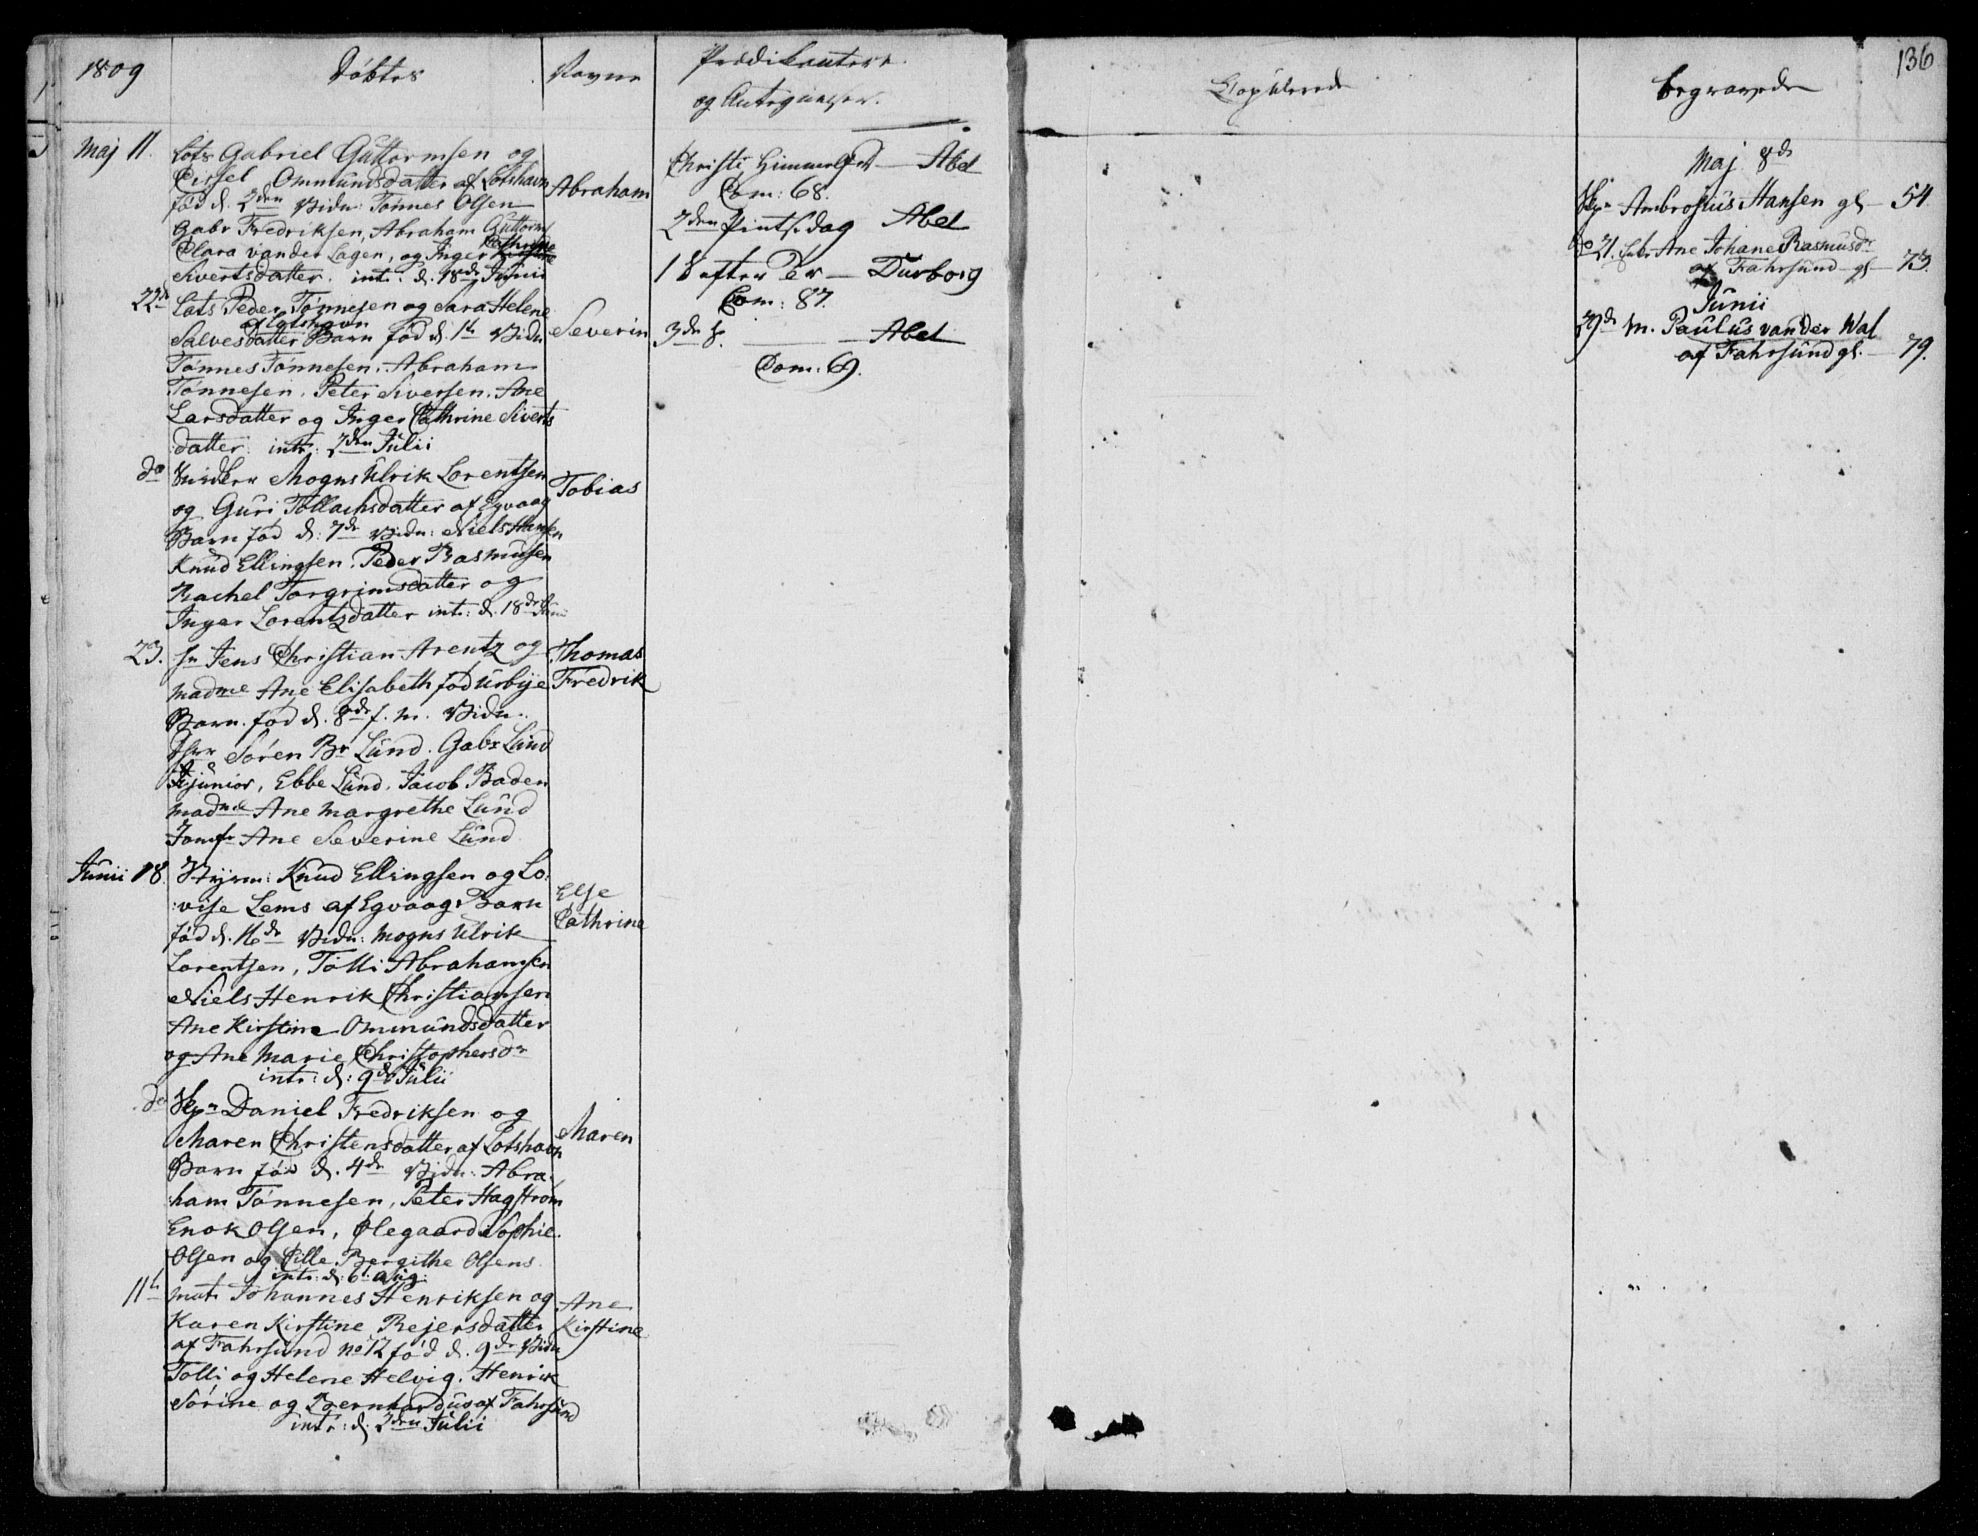 1809
Döbtes
Navne
Prædikantere
og Autegnelser.
Copulerede
begravede
136
Maj 11.
Lots Gabriel Guttormsen og
Cissel Ommundsdatter af Lotshavn
fød d. 2den Vidn: Tønnes Olsen
Gabr Fredriksen, Abraham Guttorms
Clara vander Lagen, og Inger Cathrine
Sivertsdatter. intr: d. 18de Junii
Abraham
22d
Lots Peder Tønnesen og Sara Helene
af Lotshavn
Salvesdatter Barn fød d. 1ste Vidn
Tønnes Tønnesen. Abraham
Tønnesen. Peter Siversen. Ane
Larsdatter og Inger Cathrine Siverts
datter: intr: 2den Julii
Severin
do
Mogns Ulrik Lorentsen
og Guri Tollachsdatter af Egvaag
Barn fød d: 7de Vidn: Niels Hansen
Knud Ellingsen. Peder Rasmusen
Rachel Torgrimsdatter og
Inger Lorentzdatter intr: d. 18de Juni
Tobias
23.
Hr Jens Christian Arentz og
madme Ane Elisabeth fød Urbye
Barn. fød d. 8de f. m. Vidn.
Hrr Søren Br Lund. Gabr Lund
junior, Ebbe Lund. Jacob Baden
madme Ane Margrethe Lund
Jomfr Ane Severine Lund
Thomas
Fredrik
Junii 18.
Styrm: Knud Ellingsen og Lo:
:vise Lems af Egvaag Barn
fød d. 16de Vidn: Mogns Ulrik
Lorentsen, Tolli Abrahamsen
Niels Henrik Christiansen
Ane Kirstine Ommundsdatter
og Ane Marie Christophersdr
intr: d: 9de Julii
Else
Cathrine
do
Skpr Daniel Fredriksen og
Maren Christensdatter af Lotshavn
Barn fød d. 4de Vidn: Abra
:ham Tønnesen, Peter Hagstrøm
Enok Olsen, Olegaard Sophie
Olsen og Cille Bergithe Olsens
intr: d: 6t Aug:
Maren
11te
matr Johannes Henriksen og
Karen Kirstine Rejersdatter
af Fahrsund no 12 fød d. 9de Vidn
Tolli og Helene Helvig. Henrik
Sørine og Bernhardus af Fahrsund
intr: d. 2den Julii
Ane
Kirstine
Christi Himmelfrt — Abel
Com: 68.
2den Pintsdag Abel
18 efter Per — Durborg
Com: 87.
3de s. — Abel
Com: 69.
Maj 8de
Skpr Ambrosius Hansen gl — 54
do 21. Ane Johane Rasmusdr
af Fahrsund gl — 73.
Junii
29de M. Paulus van der Wal
af Fahrsund gl. — 79.